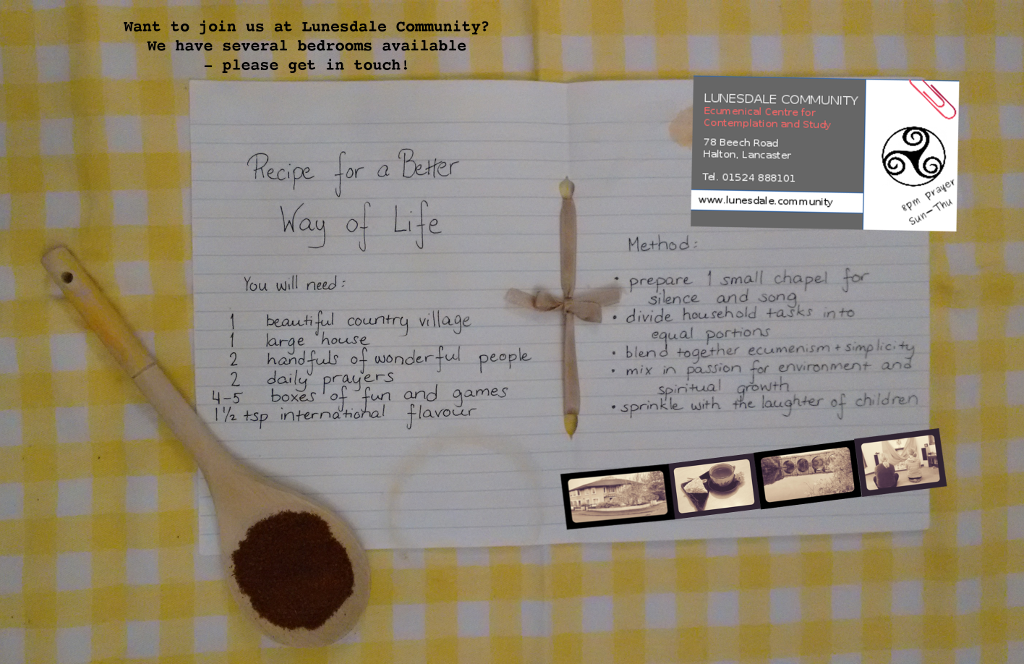 Want to join us at Lunesdale Community?
We have several bedrooms available
- please get in touch!
Recipe for a Better
Way of Life
You will need:
1 beautiful country village
1 large house
2 handfuls of wonderful people
2 daily prayers
4-5 boxes of fun and games
1½ tsp international flavour
LUNESDALE COMMUNITY
Ecumenical Centre for
Contemplation and Study
78 Beech Road
Halton, Lancaster
Tel. 01524 888101
www.lunesdale.community
8pm prayer
Sun-Thu
Method:
• prepare 1 small chapel for
silence and song
• divide household tasks into
equal portions
• blend together ecumenism + simplicity
• mix in passion for environment and
spiritual growth
• sprinkle with the laughter of children